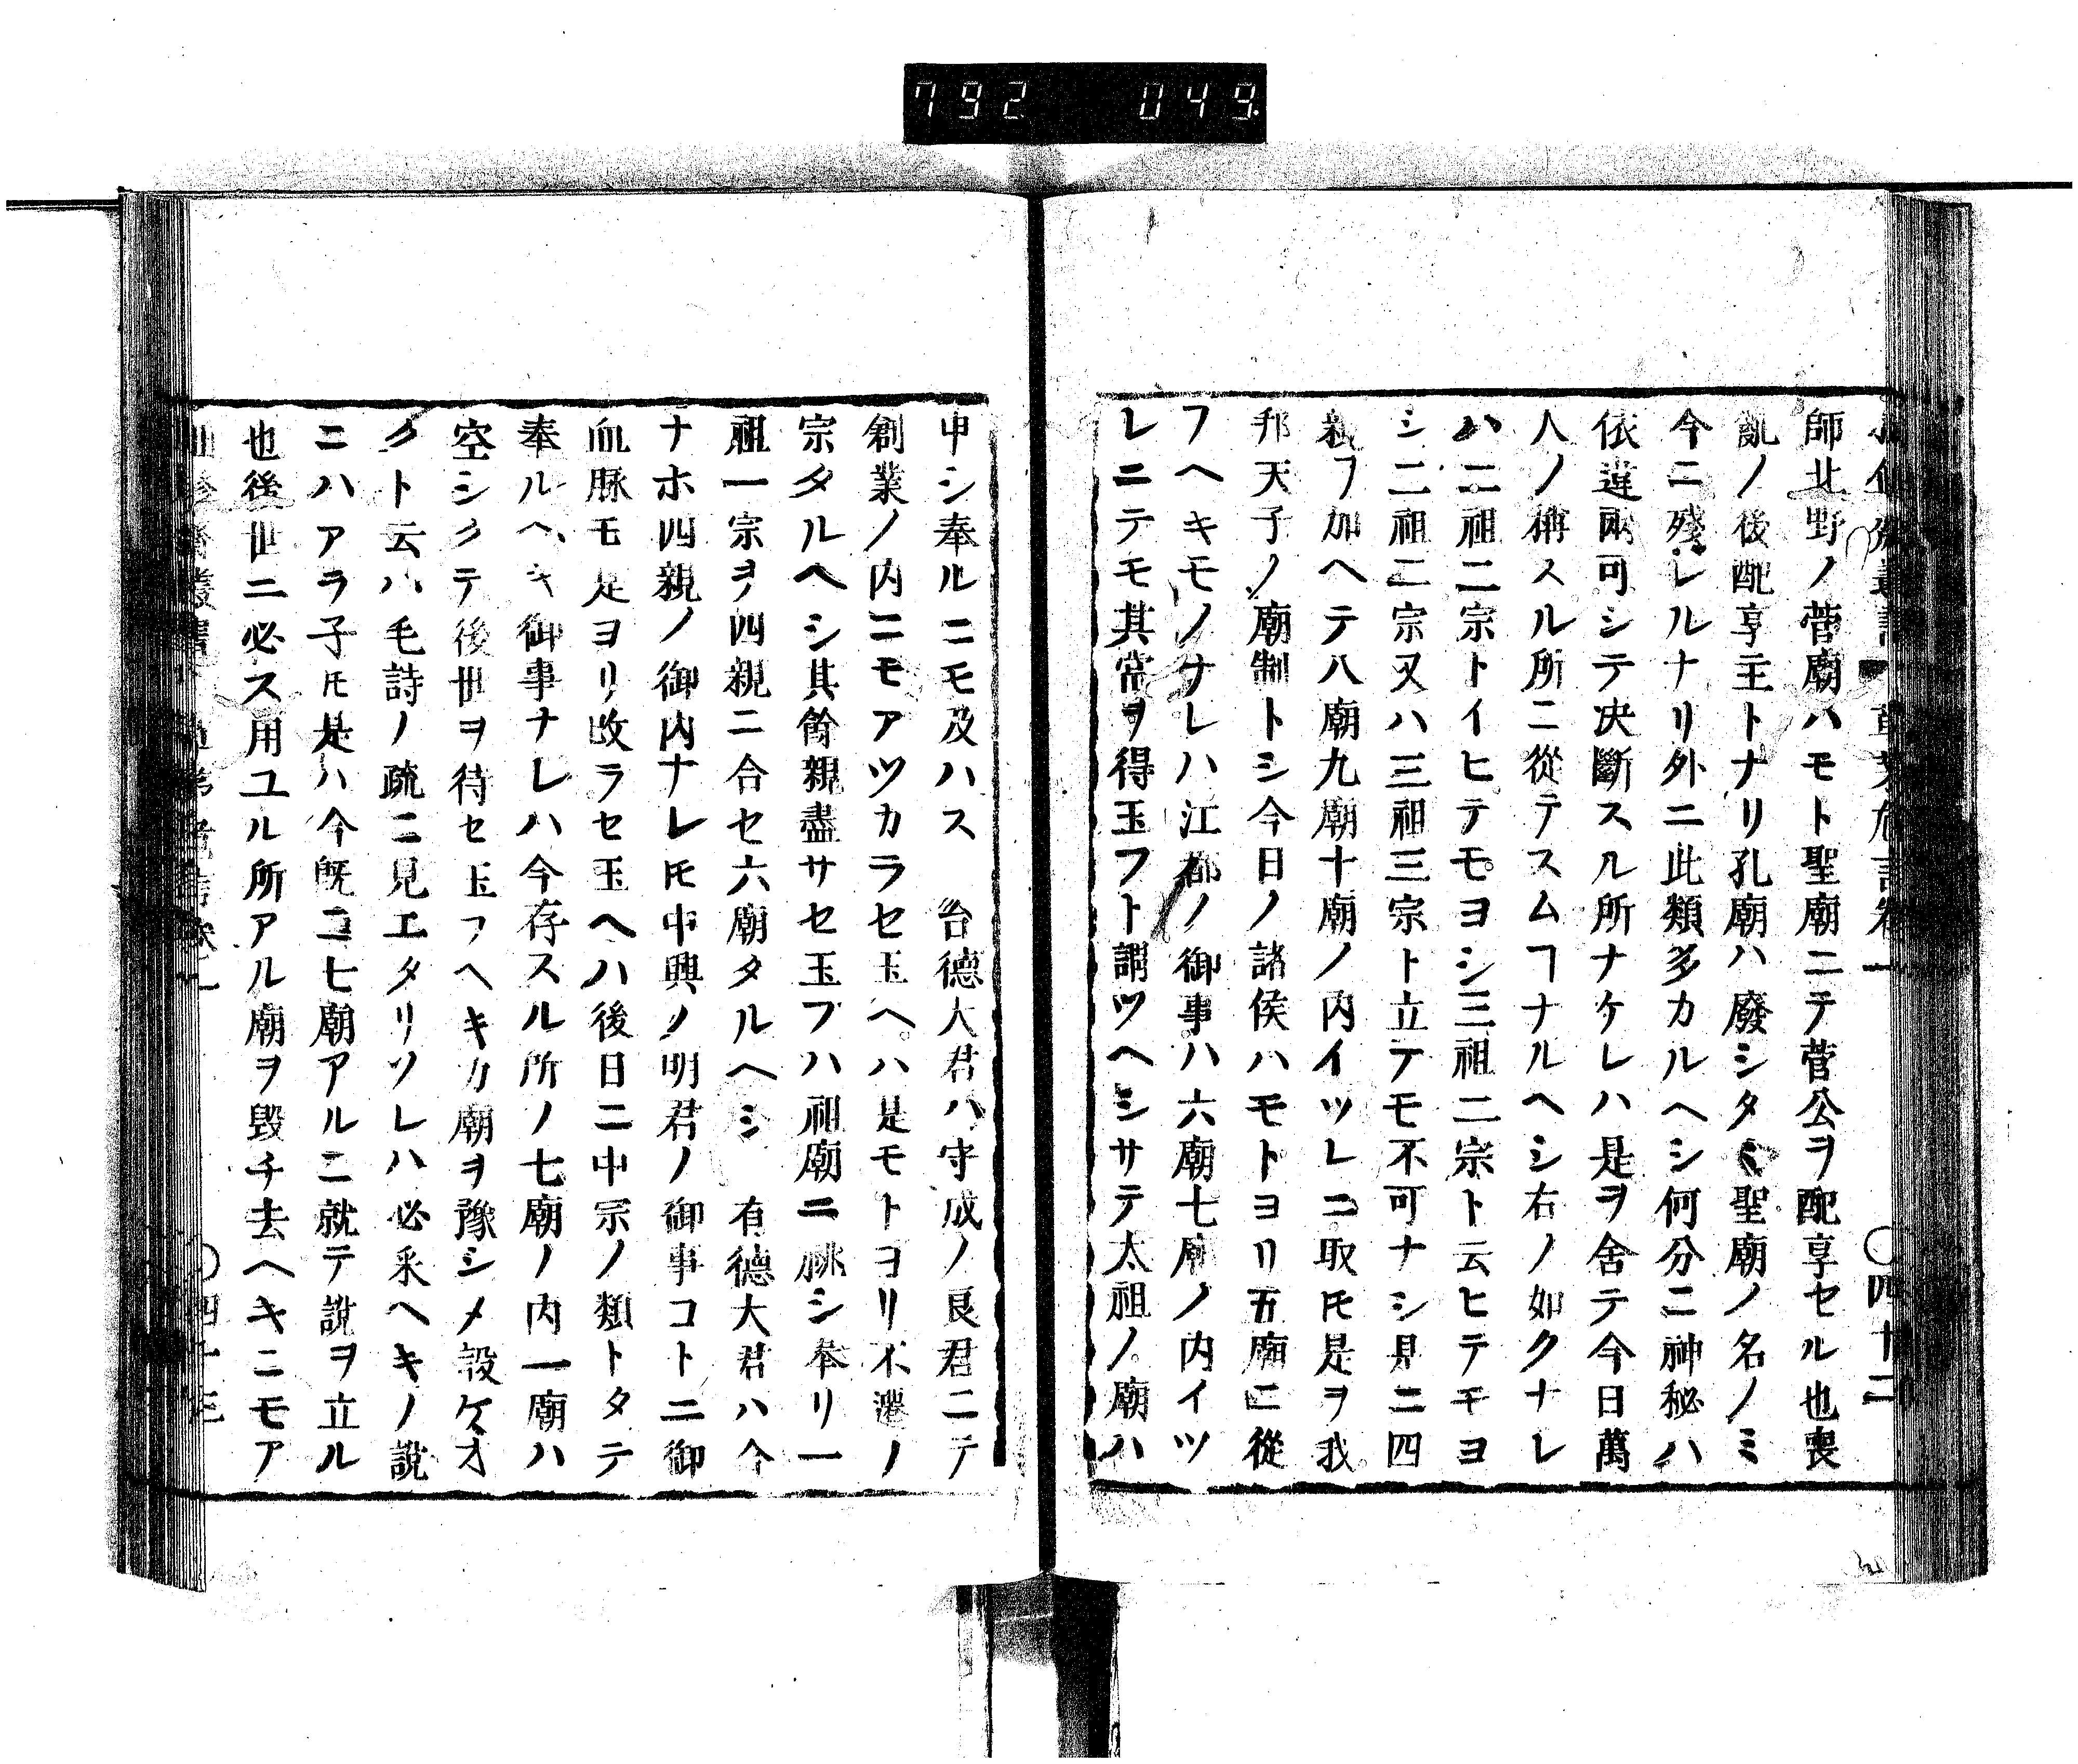 792 049
師北野ノ菅廟ハモト聖廟ニテ菅公ヲ配享セル也喪
亂ノ後配享主トナリ孔廟ハ廢シタヾ聖廟ノ名ノミ
今ニ殘レルナリ外ニ此類多カルヘシ何分ニ神秘ハ
依違兩可シテ决斷スル所ナケレハ是ヲ舍テ今日萬
人ノ構スル所ニ從テスムヿナルヘシ右ノ如クナレ
ハ二祖二宗トイヒテモヨシ三祖二宗ト云ヒテモヨ
シ二祖二宗又ハ三祖三宗ト立テモ不可ナシ見ニ四
親ヲ加ヘテ八廟九廟十廟ノ内イツレニ取𪜈是ヲ我
邦天子ノ廟制トシ今日ノ諸侯ハモトヨリ五廟ニ從
フヘキモノナレハ江都ノ御事ハ六廟七廟ノ内イツ
レニテモ其當ヲ得玉フト謂ツヘシサテ太祖ノ廟ハ
〇四十二
申シ奉ルニモ及ハス 台德大君ハ守成ノ良君ニテ
創業ノ内ニモアツカラセ玉ヘハ是モトヨリ不遷ノ
宗タルヘシ其餘親盡サセ玉フハ祖廟ニ祧シ奉リ一
祖一宗ヲ四親ニ合セ六廟タルヘシ 有德大君ハ今
ナホ四親ノ御内ナレ𪜈中興ノ明君ノ御事コトニ御
血脉モ是ヨリ改ラセ玉ヘハ後日ニ中宗ノ類トタテ
奉ルヘキ御事ナレハ今存スル所ノ七廟ノ内一廟ハ
空シクテ後世ヲ待セ玉フヘキカ廟ヲ豫シメ設ケオ
クト云ハ毛詩ノ疏ニ見エタリソレハ必釆ヘキノ說
ニハアラ子𪜈是ハ今既ニ七廟アルニ就テ說ヲ立ル
也後世ニ必ス用ユル所アル廟ヲ毀チ去ヘキニモア
〇四十三